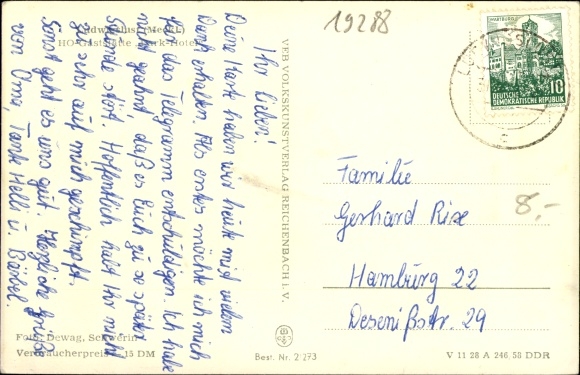 Ludwigslust (Meckl.)
HO-Gaststätte „Park-Hotel“
Ihr Lieben!
Deine Karte haben wir heute mit vielem
Dank erhalten. Als erstes möchte ich mich
für das Telegramm entschuldigen. Ich habe
nicht geahnt, daß es Euch zu so später
Stunde stört. Hoffentlich habt Ihr nicht
zu sehr auf mich geschimpft.
Sonst geht es uns gut. Herzliche Grüße
von Oma, Tante Helli u. Bärbel.
Foto: Dewag, Schwerin
Verbraucherpreis -,15 DM
VEB VOLKSKUNSTVERLAG REICHENBACH i. V.
Best. Nr. 2 273
19288
WARTBURG
10
DEUTSCHE
DEMOKRATISCHE REPUBLIK
Familie
Gerhard Rixe
Hamburg 22
Desenißstr. 29
8,-
V 11 28 A 246 58 DDR